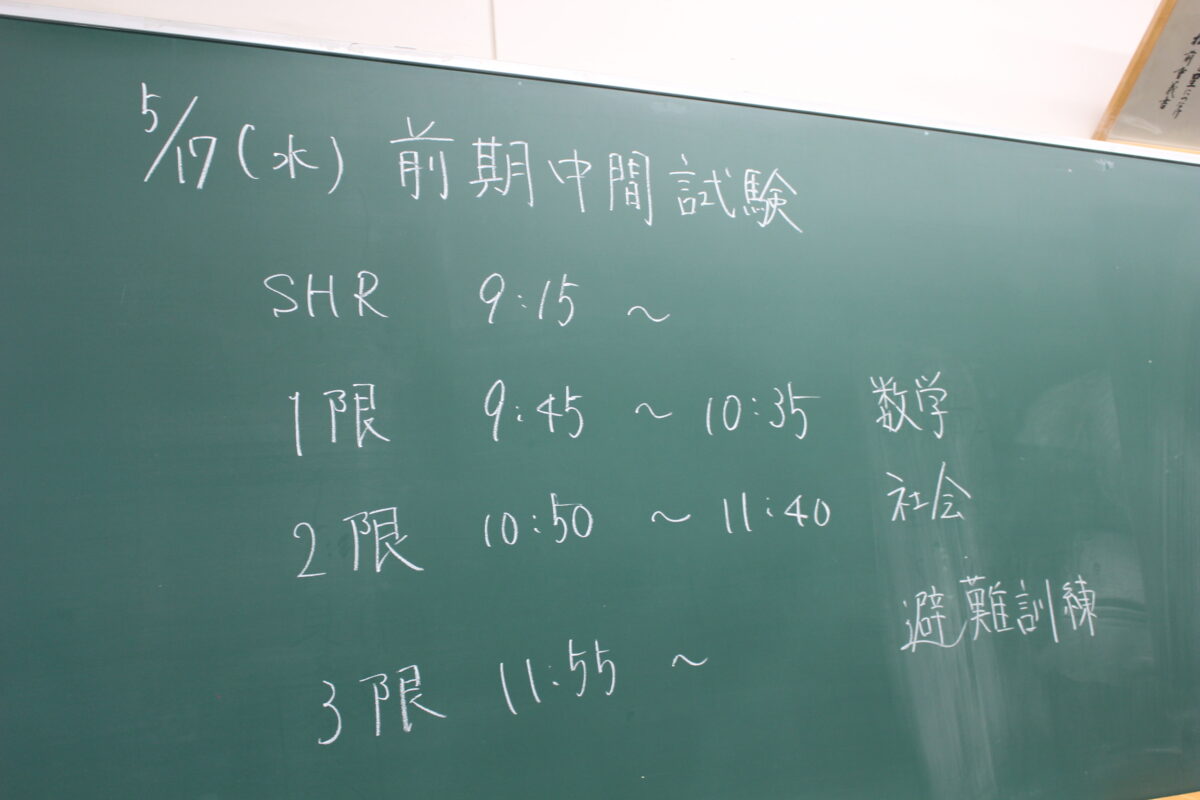 5/17(水) 前期中間試験
SHR 9:15 ~
1限 9:45 ~ 10:35 数学
2限 10:50 ~ 11:40 社会
3限 11:55 ~ 避難訓練